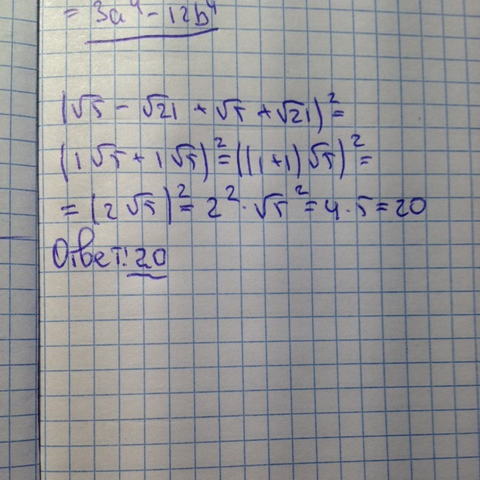 = 3a⁴ - 12b⁴
(√5 - √21 + √5 + √21)² =
(1√5 + 1√5)² = ((1+1)√5)² =
= (2√5)² = 2² · √5² = 4 · 5 = 20
Ответ: 20